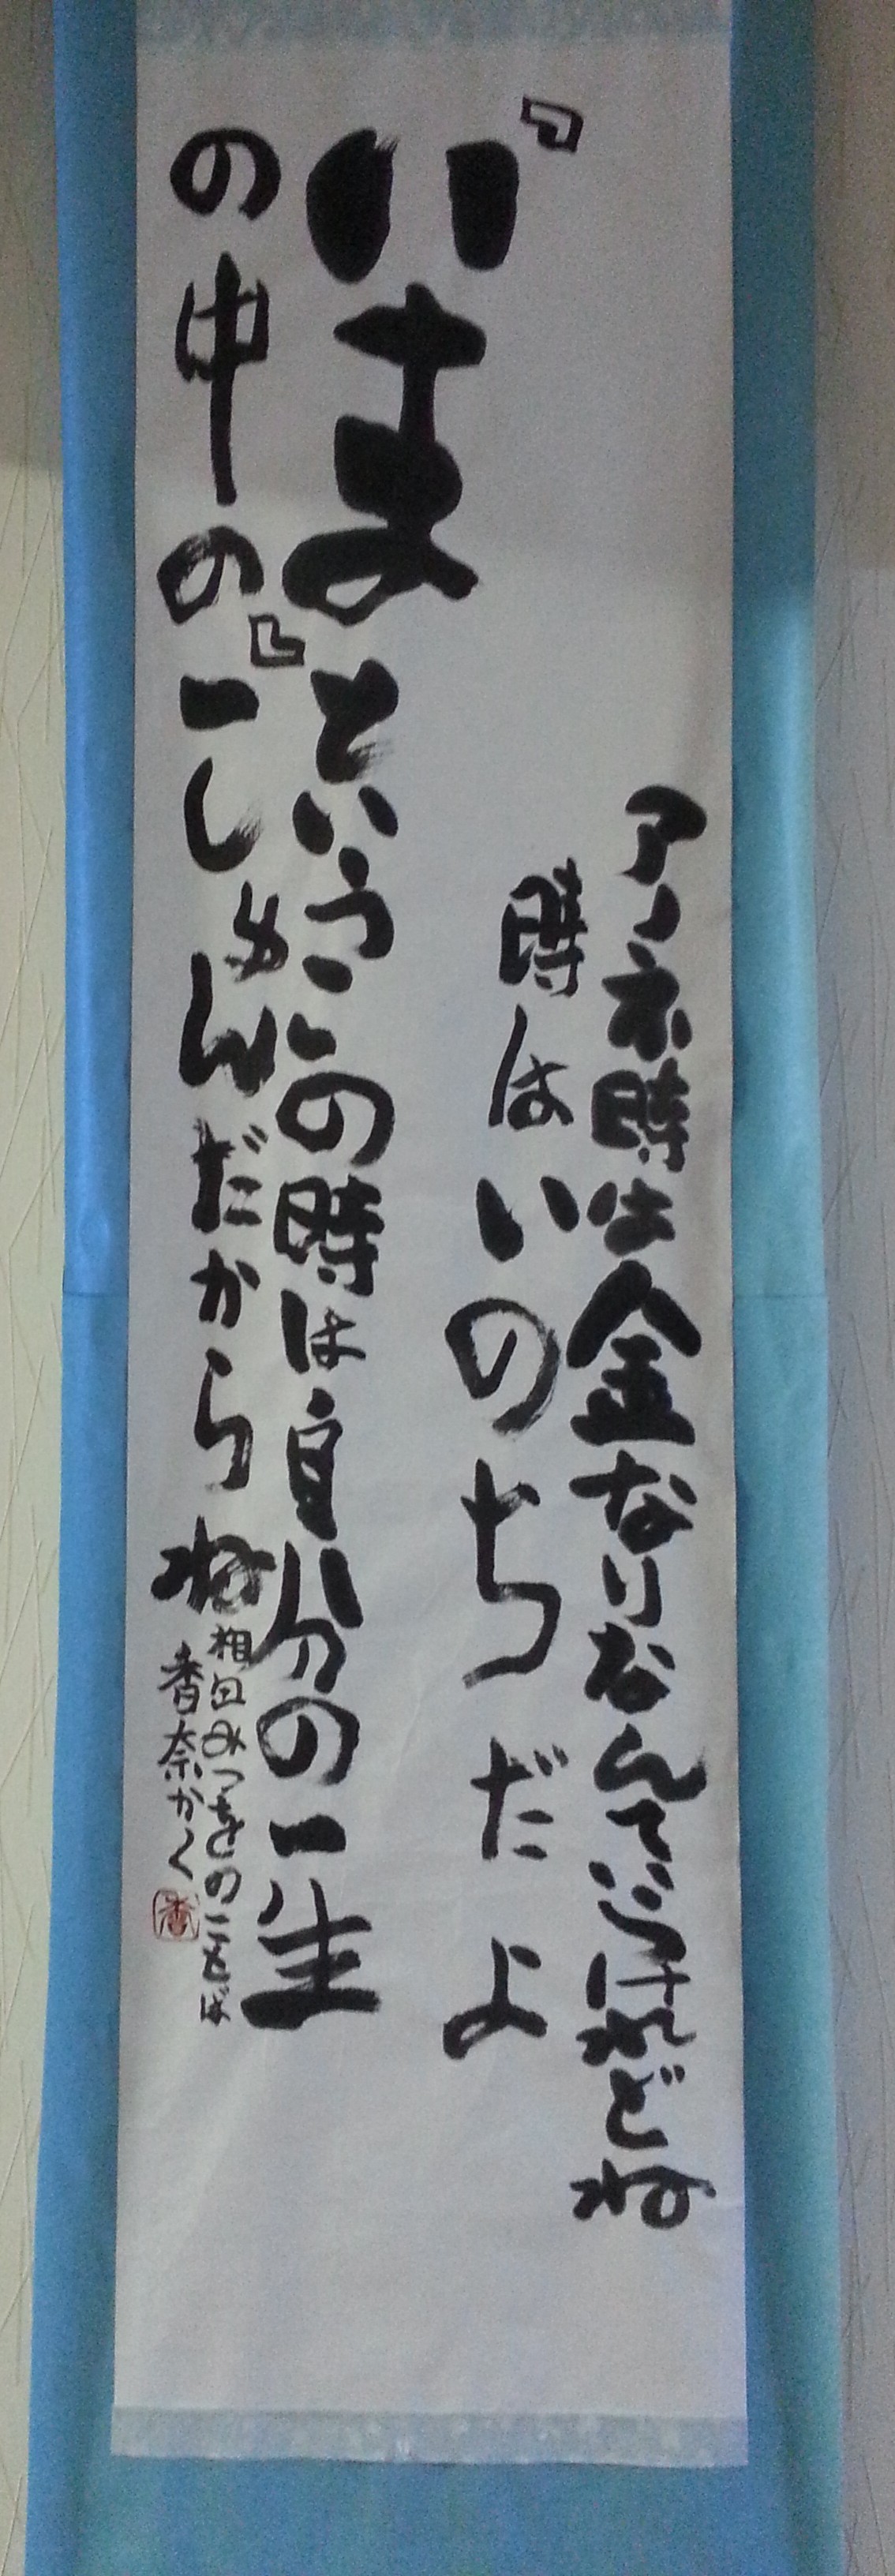 アノネ時は金なりなんていうけれどね
時はいのちだよ
『いま』というこの時は自分の一生
の中の一しゅんだからね
相田みつをのことば
香奈かく
香